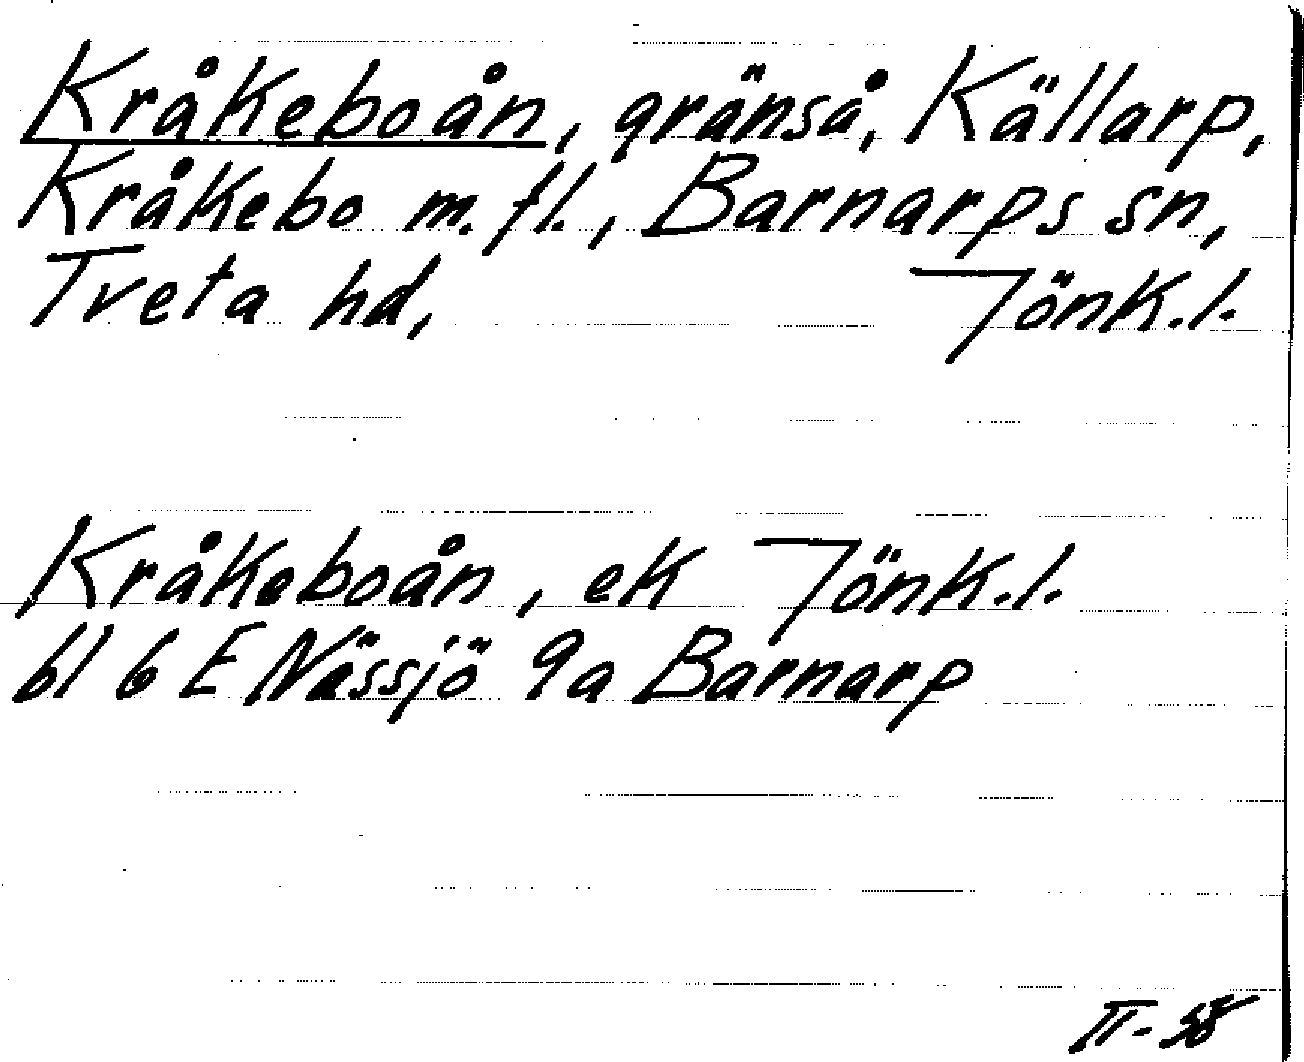 Kråkeboån, gränså, Källarp,
Kråkebo m.fl., Barnarps sn,
Tveta hd, Jönk.l.
Kråkeboån, ek Jönk.l.
bl 6 E Nässjö 9a Barnarp
II-58